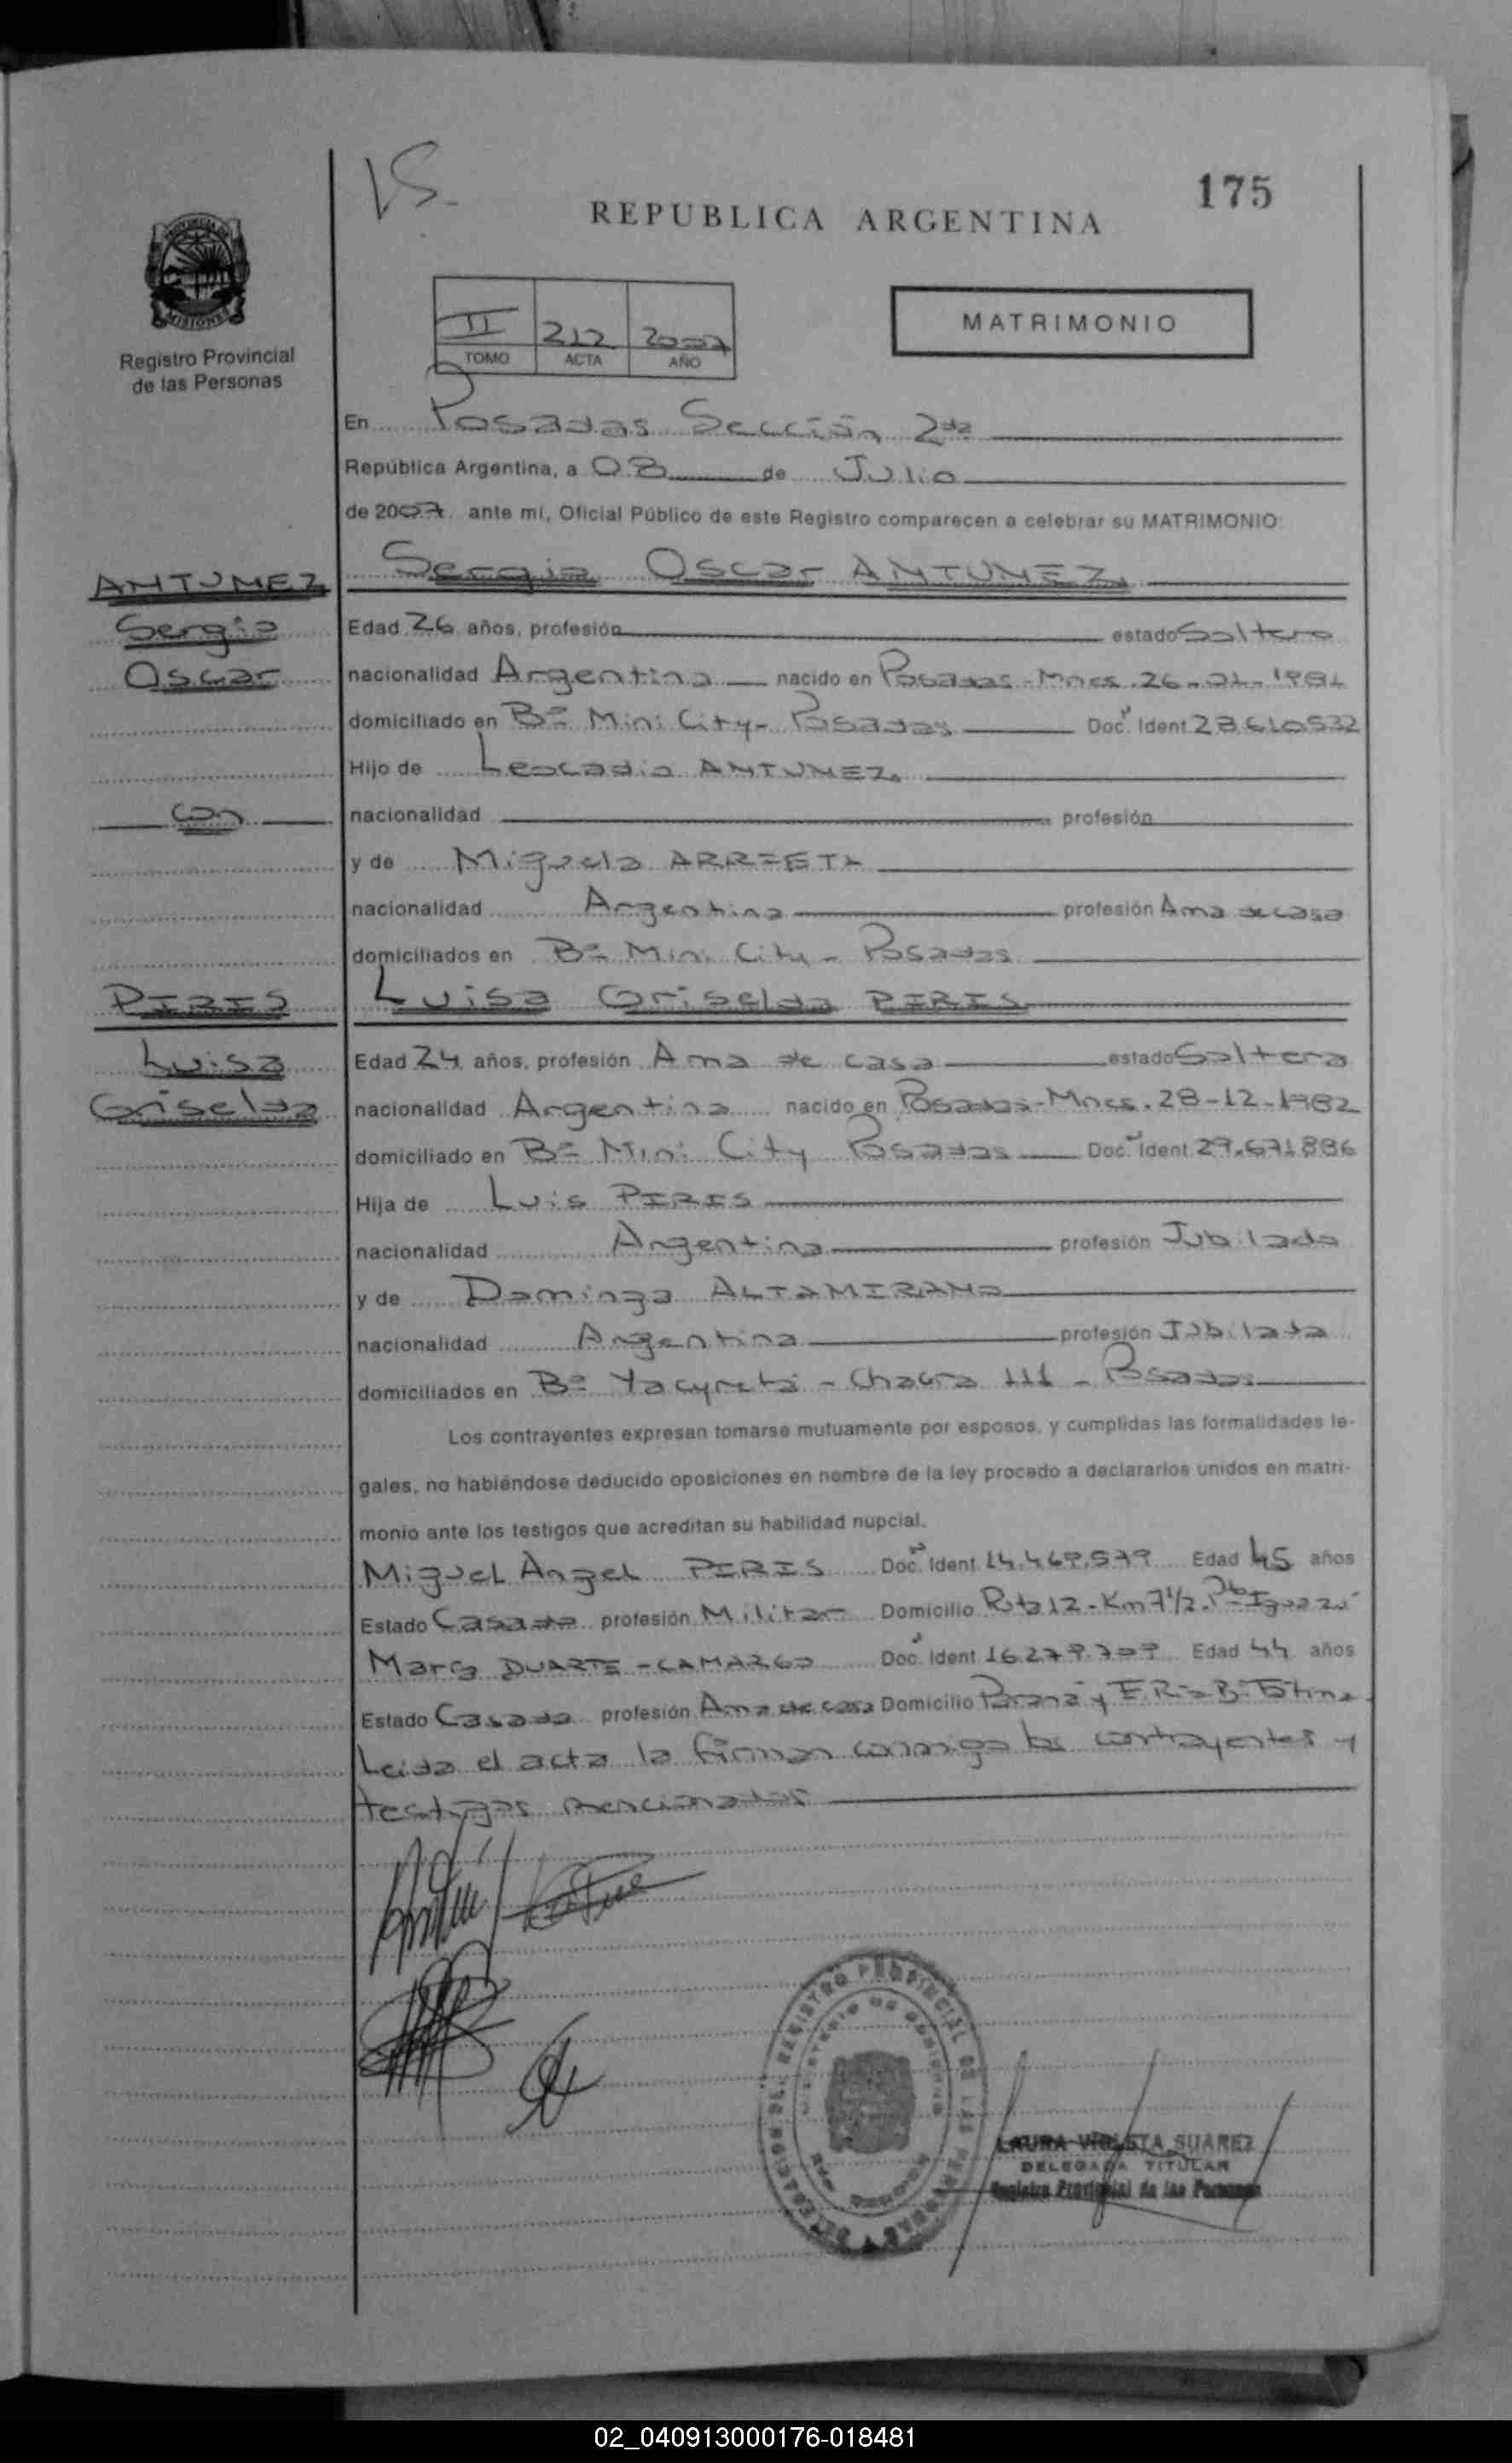 VS.
175
REPUBLICA ARGENTINA
PROVINCIA DE
MISIONES
Registro Provincial
de las Personas
II 212 2007
TOMO ACTA AÑO
MATRIMONIO
En Posadas Sección 2da
República Argentina, a 08 de Julio
de 2007 ante mi, Oficial Público de este Registro comparecen a celebrar su MATRIMONIO:
ANTUNEZ Sergio Oscar ANTUNEZ
Sergio Edad 26 años, profesión estado Soltero
Oscar nacionalidad Argentina nacido en Posadas - Mnes. 26-01-1981
domiciliado en Bº Mini City - Posadas Doc. Ident. 28.610532
Hijo de Leocadio ANTUNEZ
con nacionalidad profesión
y de Miguela ARRIETA
nacionalidad Argentina profesión Ama de casa
domiciliados en Bº Mini City - Posadas
PIRIS Luisa Griselda PIRIS
Luisa Edad 24 años, profesión Ama de casa estado Soltera
Griselda nacionalidad Argentina nacido en Posadas - Mnes. 28-12-1982
domiciliado en Bº Mini City Posadas Doc. Ident. 29.671886
Hija de Luis PIRIS
nacionalidad Argentina profesión Jubilado
y de Dominga ALTAMIRANO
nacionalidad Argentina profesión Jubilada
domiciliados en Bº Yacyretá - Chacra 111 - Posadas
Los contrayentes expresan tomarse mutuamente por esposos, y cumplidas las formalidades le-
gales, no habiéndose deducido oposiciones en nombre de la ley procedo a declararlos unidos en matri-
monio ante los testigos que acreditan su habilidad nupcial.
Miguel Angel PIRIS Doc. Ident. 14.469.579 Edad 45 años
Estado Casado profesión Militar Domicilio Ruta 12 - Km 7 1/2 - Pto Iguazú
María DUARTE - CAMARGO Doc. Ident. 16.279.709 Edad 44 años
Estado Casada profesión Ama de casa Domicilio Paraná y E. Ríos Bº Fátima
Leida el acta la firman conmigo los contrayentes y
testigos mencionados
DELEGACION DEL REGISTRO PROVINCIAL DE LAS PERSONAS
LAURA VIOLETA SUAREZ
DELEGADA TITULAR
Registro Provincial de las Personas
02_040913000176-018481